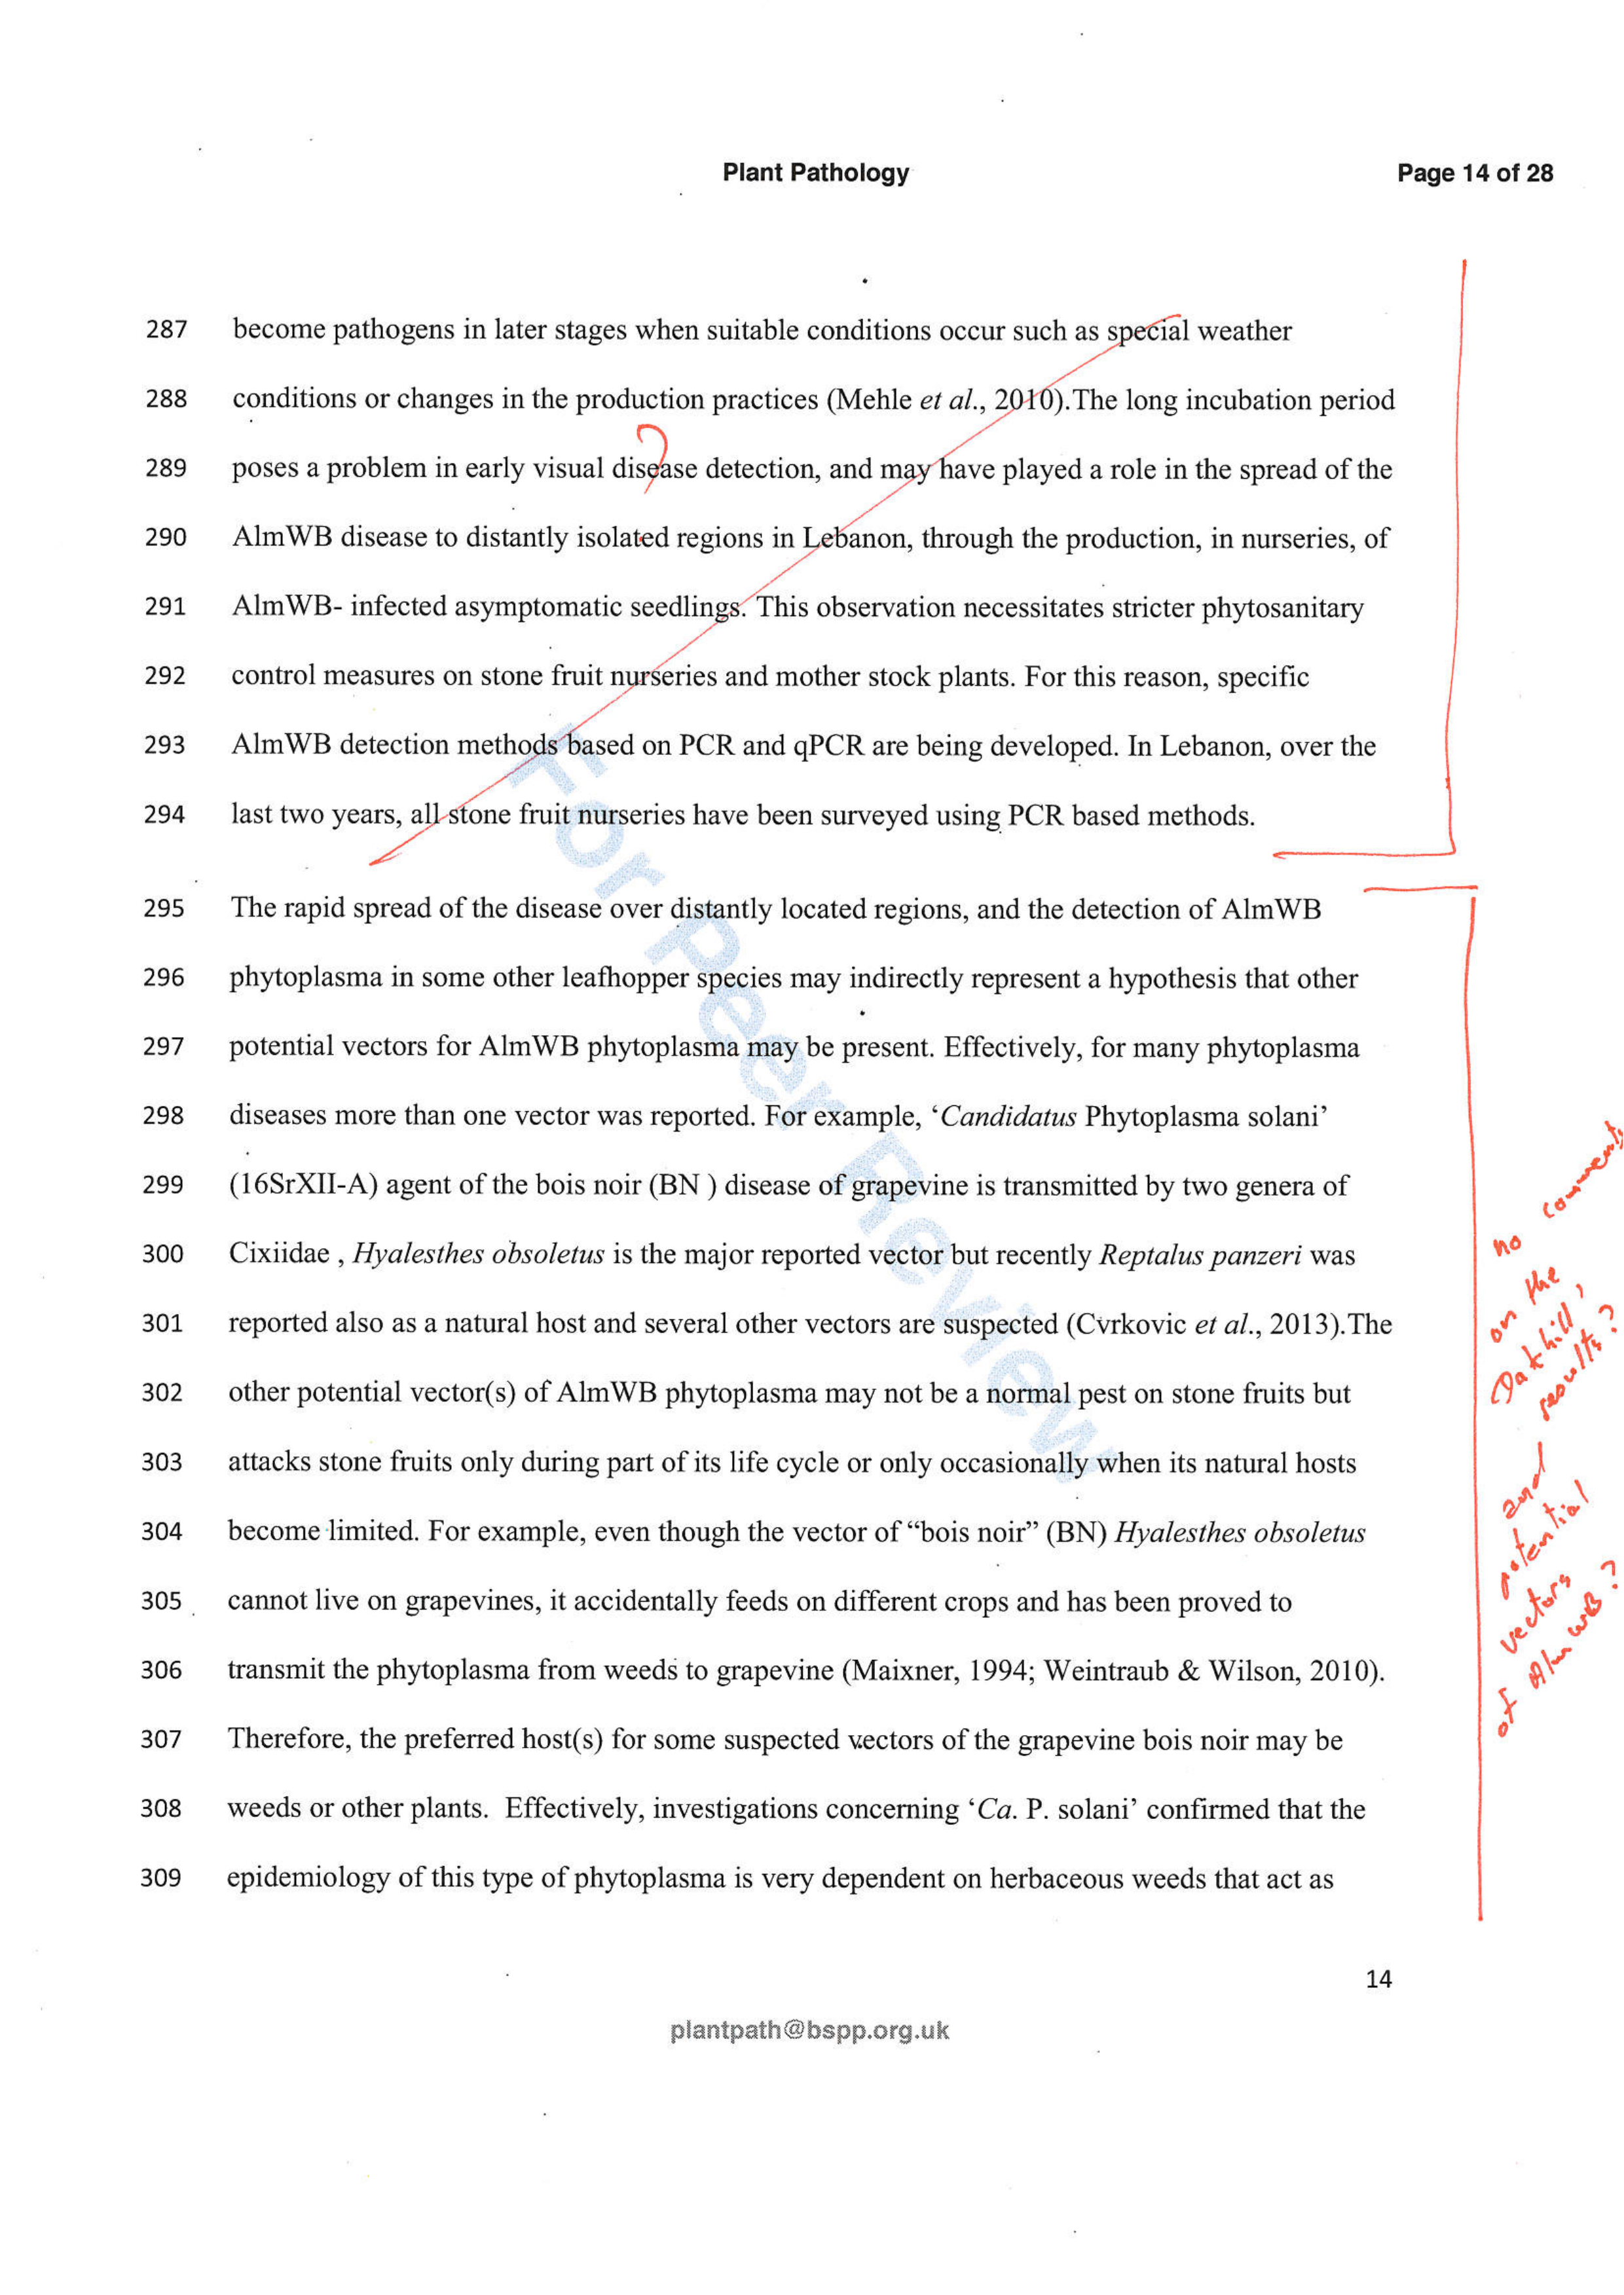 Plant Pathology
Page 14 of 28
287 become pathogens in later stages when suitable conditions occur such as special weather
288 conditions or changes in the production practices (Mehle et al., 2010).The long incubation period
?
289 poses a problem in early visual disease detection, and may have played a role in the spread of the
290 AlmWB disease to distantly isolated regions in Lebanon, through the production, in nurseries, of
291 AlmWB- infected asymptomatic seedlings. This observation necessitates stricter phytosanitary
292 control measures on stone fruit nurseries and mother stock plants. For this reason, specific
293 AlmWB detection methods based on PCR and qPCR are being developed. In Lebanon, over the
294 last two years, all stone fruit nurseries have been surveyed using PCR based methods.
295 The rapid spread of the disease over distantly located regions, and the detection of AlmWB
296 phytoplasma in some other leafhopper species may indirectly represent a hypothesis that other
297 potential vectors for AlmWB phytoplasma may be present. Effectively, for many phytoplasma
298 diseases more than one vector was reported. For example, ‘Candidatus Phytoplasma solani’
299 (16SrXII-A) agent of the bois noir (BN ) disease of grapevine is transmitted by two genera of
300 Cixiidae , Hyalesthes obsoletus is the major reported vector but recently Reptalus panzeri was
301 reported also as a natural host and several other vectors are suspected (Cvrkovic et al., 2013).The
302 other potential vector(s) of AlmWB phytoplasma may not be a normal pest on stone fruits but
303 attacks stone fruits only during part of its life cycle or only occasionally when its natural hosts
304 become limited. For example, even though the vector of “bois noir” (BN) Hyalesthes obsoletus
305 cannot live on grapevines, it accidentally feeds on different crops and has been proved to
306 transmit the phytoplasma from weeds to grapevine (Maixner, 1994; Weintraub & Wilson, 2010).
307 Therefore, the preferred host(s) for some suspected vectors of the grapevine bois noir may be
308 weeds or other plants. Effectively, investigations concerning ‘Ca. P. solani’ confirmed that the
309 epidemiology of this type of phytoplasma is very dependent on herbaceous weeds that act as
no comments
on the
results?
and
potential
vectors
of AlmWB?
For Peer Review
14
plantpath@bspp.org.uk